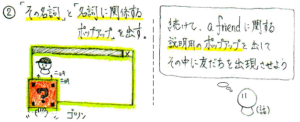 ② 「その名詞」と「名詞」に関係する
ポップアップを出す。
X
?
ゴソッ
続けて、a friendに関する
説明用のポップアップを出して
その中に友だちを出現させよう